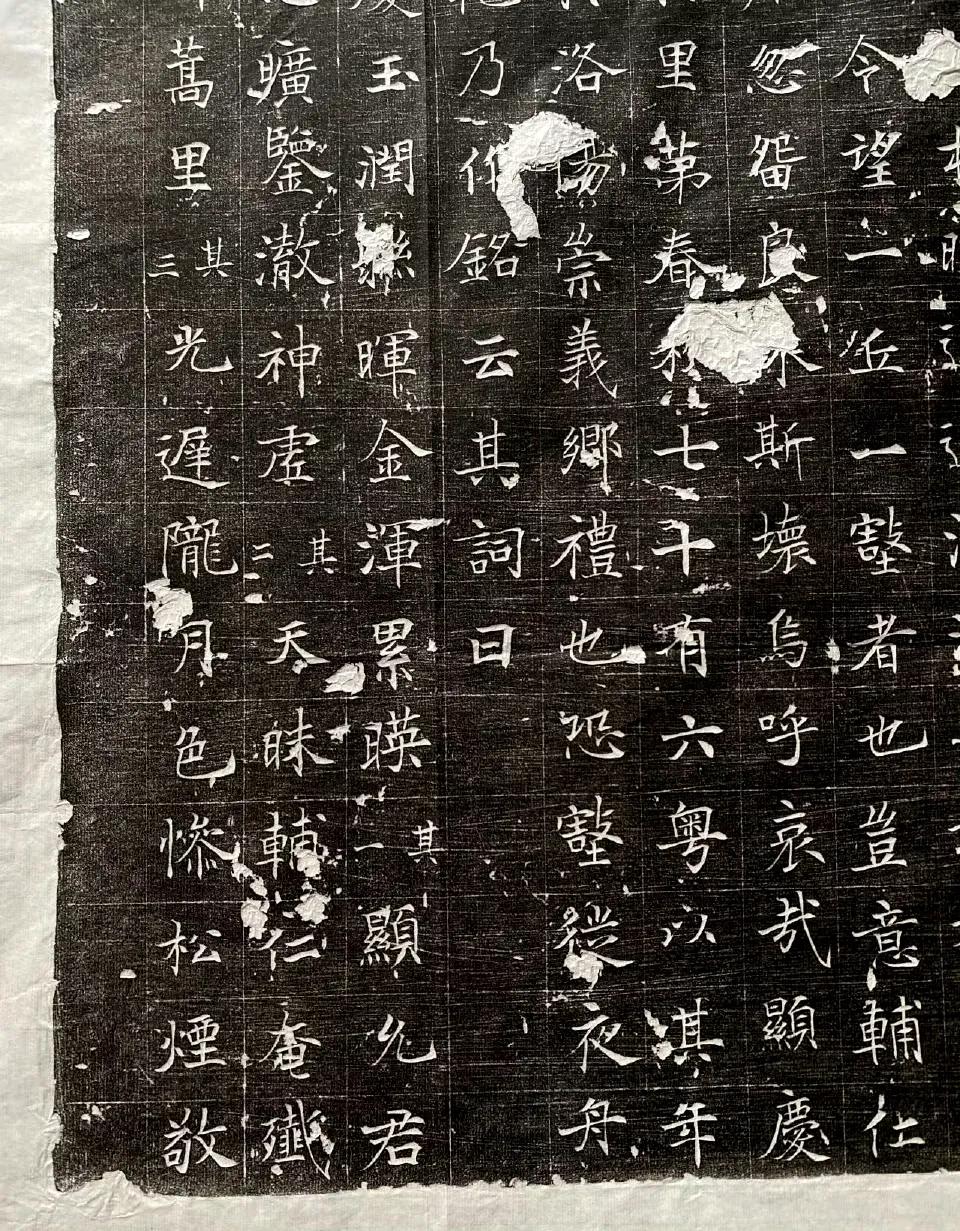 令望一丘一壑者也豈意輔仁
忽留良木斯壞烏呼哀哉顯慶
里第春秋七十有六粤以其年
洛陽崇義鄉禮也恐壑從夜舟
乃作銘云其詞曰
玉潤聯暉金渾累暎其一顯允君
曠鑒澈神虛其二天昧輔仁奄殲
蒿里其三光遲隴月色慘松煙敬